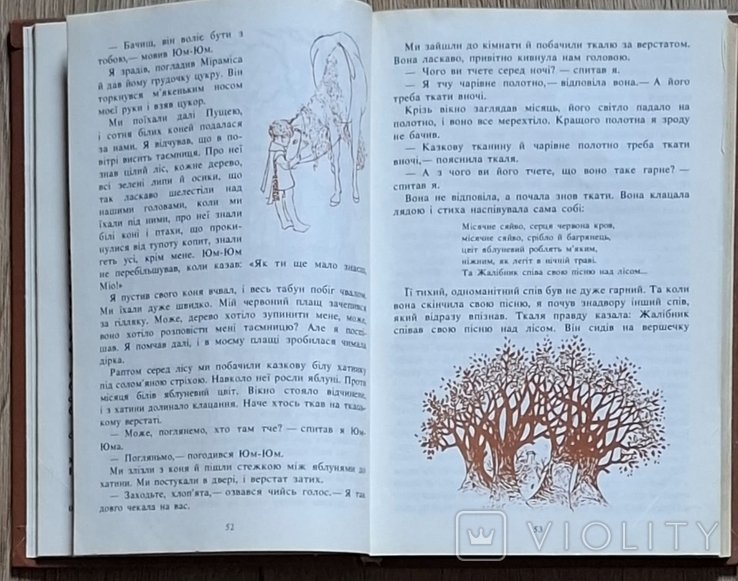 — Бачиш, він воліє бути з
тобою,— мовив Юм-Юм.
Я зрадів, погладив Міраміса
й дав йому грудочку цукру. Він
торкнувся м'якеньким носом
моєї руки і взяв цукор.
Ми поїхали далі Пущею,
і сотня білих коней подалася
за нами. Я відчував, що в по-
вітрі висить таємниця. Про неї
знав цілий ліс, кожне дерево,
всі зелені липи й осики, що
так ласкаво шелестіли над
нашими головами, коли ми
їхали під ними, про неї знали
білі коні і птахи, що проки-
нулися від тупоту копит, знали
геть усі, крім мене. Юм-Юм
не перебільшував, коли казав: «Як ти ще мало знаєш,
Міо!»
Я пустив свого коня вчвал, і весь табун побіг чвалом.
Ми їхали дуже швидко. Мій червоний плащ зачепився
за гілляку. Може, дерево хотіло зупинити мене, може,
воно хотіло розповісти мені таємницю? Але я поспі-
шав. Я помчав далі, і в моєму плащі зробилася чимала
дірка.
Раптом серед лісу ми побачили казкову білу хатину
під солом'яною стріхою. Навколо неї росли яблуні. Проти
місяця білів яблуневий цвіт. Вікно стояло відчинене,
і з хатини долинало клацання. Наче хтось ткав на ткаць-
кому верстаті.
— Може, поглянемо, хто там тче? — спитав я Юм-
Юма.
— Погляньмо,— погодився Юм-Юм.
Ми злізли з коня й пішли стежкою між яблунями до
хатини. Ми постукали в двері, і верстат затих.
— Заходьте, хлоп'ята,— озвався чийсь голос.— Я так
довго чекала на вас.
52
Ми зайшли до кімнати й побачили ткалю за верстатом.
Вона ласкаво, привітно кивнула нам головою.
— Чого ви тчете серед ночі? — спитав я.
— Я тчу чарівне полотно,— відповіла вона.— А його
треба ткати вночі.
Крізь вікно заглядав місяць, його світло падало на
полотно, і воно все мерехтіло. Кращого полотна я зроду
не бачив.
— Казкову тканину й чарівне полотно треба ткати
вночі,— пояснила ткаля.
— А з чого ви його тчете, що воно таке гарне? —
спитав я.
Вона не відповіла, а почала знов ткати. Вона клацала
лядою і стиха наспівувала сама собі:
Місячне сяйво, серця червона кров,
місячне сяйво, срібло й багрянець,
цвіт яблуневий роблять м'яким,
ніжним, як легіт в нічній траві.
Та Жалібник співа свою пісню над лісом...
Її тихий, одноманітний спів був не дуже гарний. Та коли
вона скінчила свою пісню, я почув знадвору інший спів,
який відразу впізнав. Ткаля правду казала: Жалібник
співав свою пісню над лісом. Він сидів на вершечку
53
VIOLITY